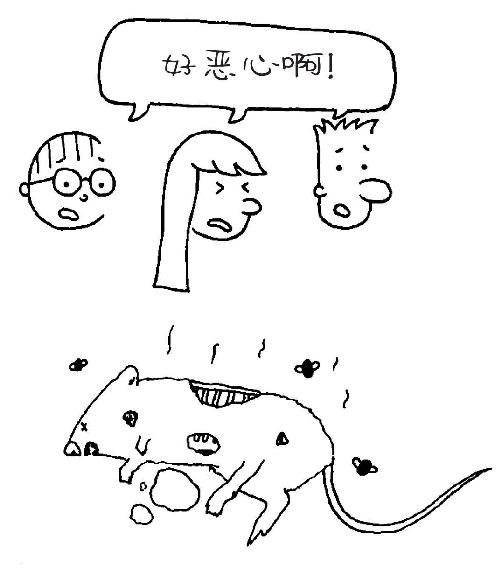 好恶心啊!